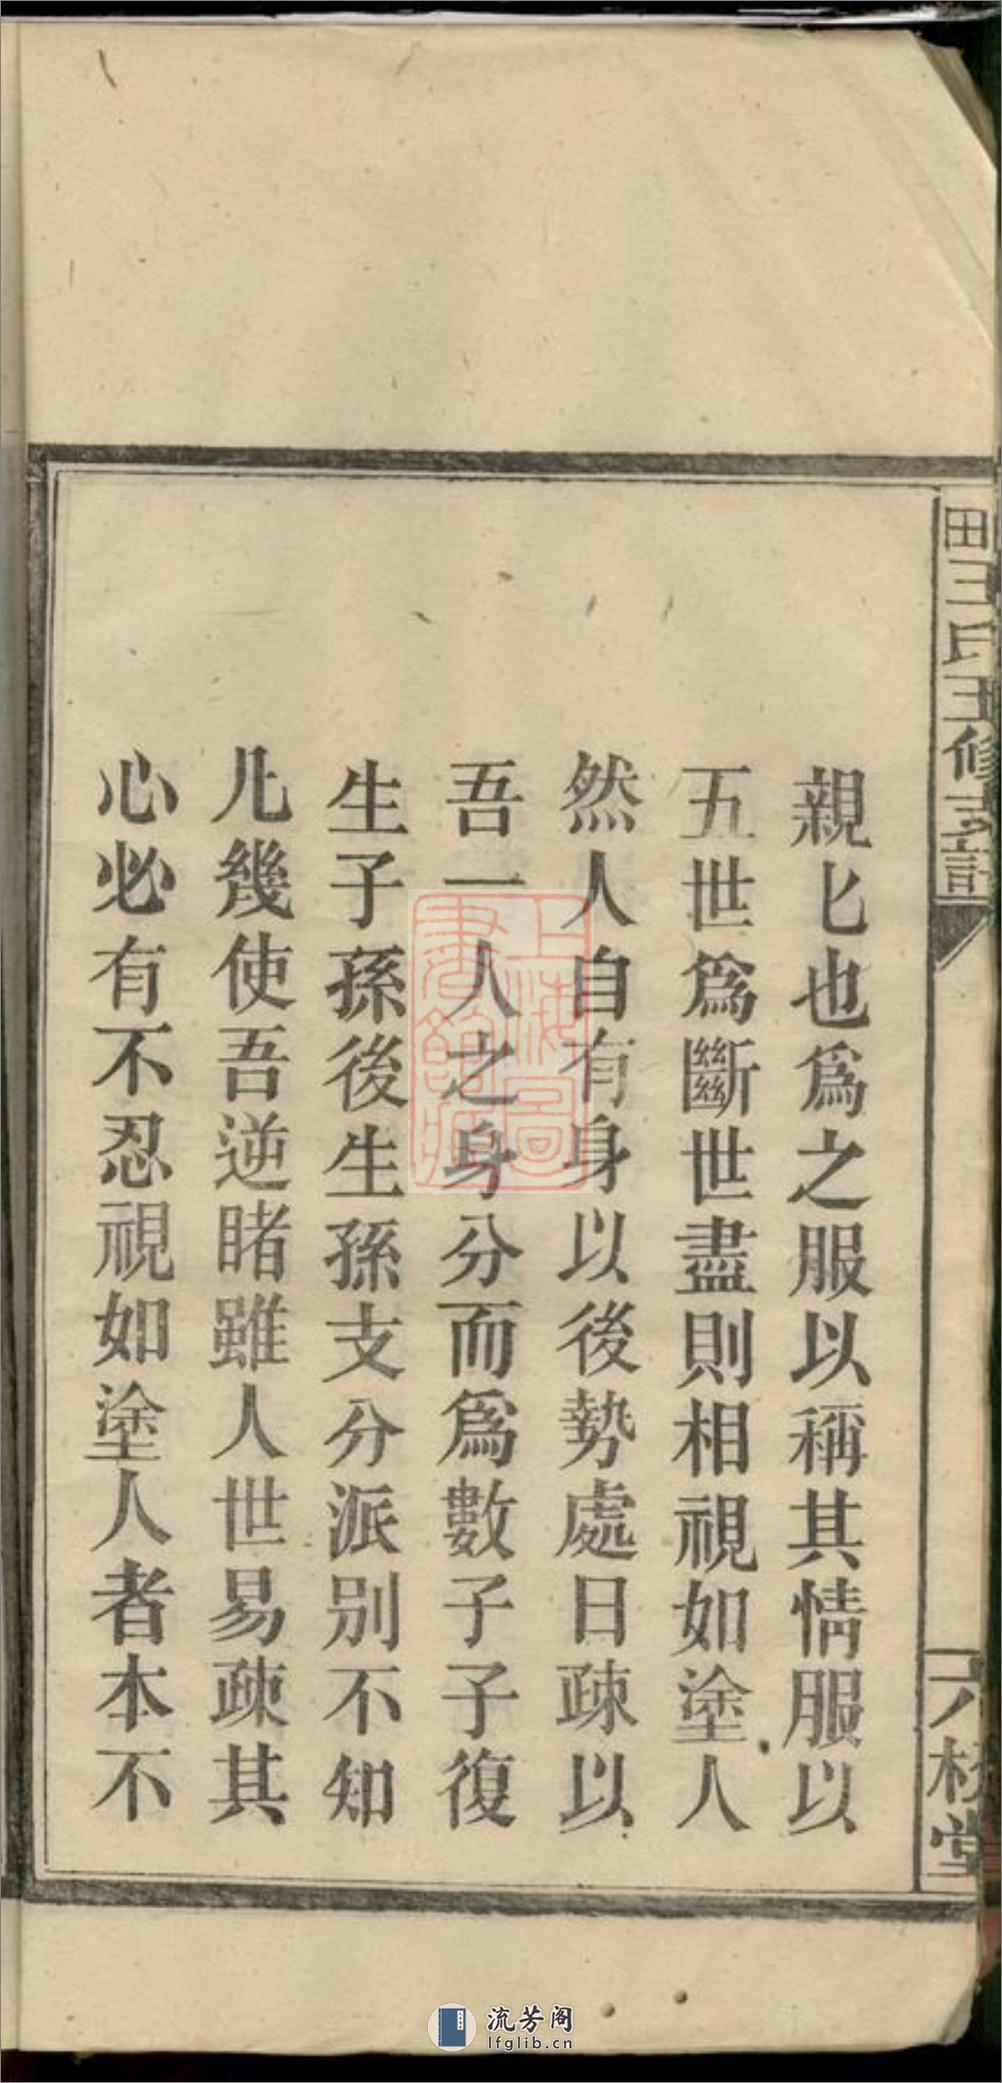 親匕也爲之服以稱其情服以
五世爲斷世世盡則相視如塗人
然人自有身以後勢處日疎以
吾一人之身分而爲數子子復
生子孫後生孫支分派別不知
凡幾使吾逆睹雖人世易疎其
心必有不忍視如塗人者本不
田王氏五修支譜
六桂堂
上海圖書館藏
流芳阁
lfglib.cn